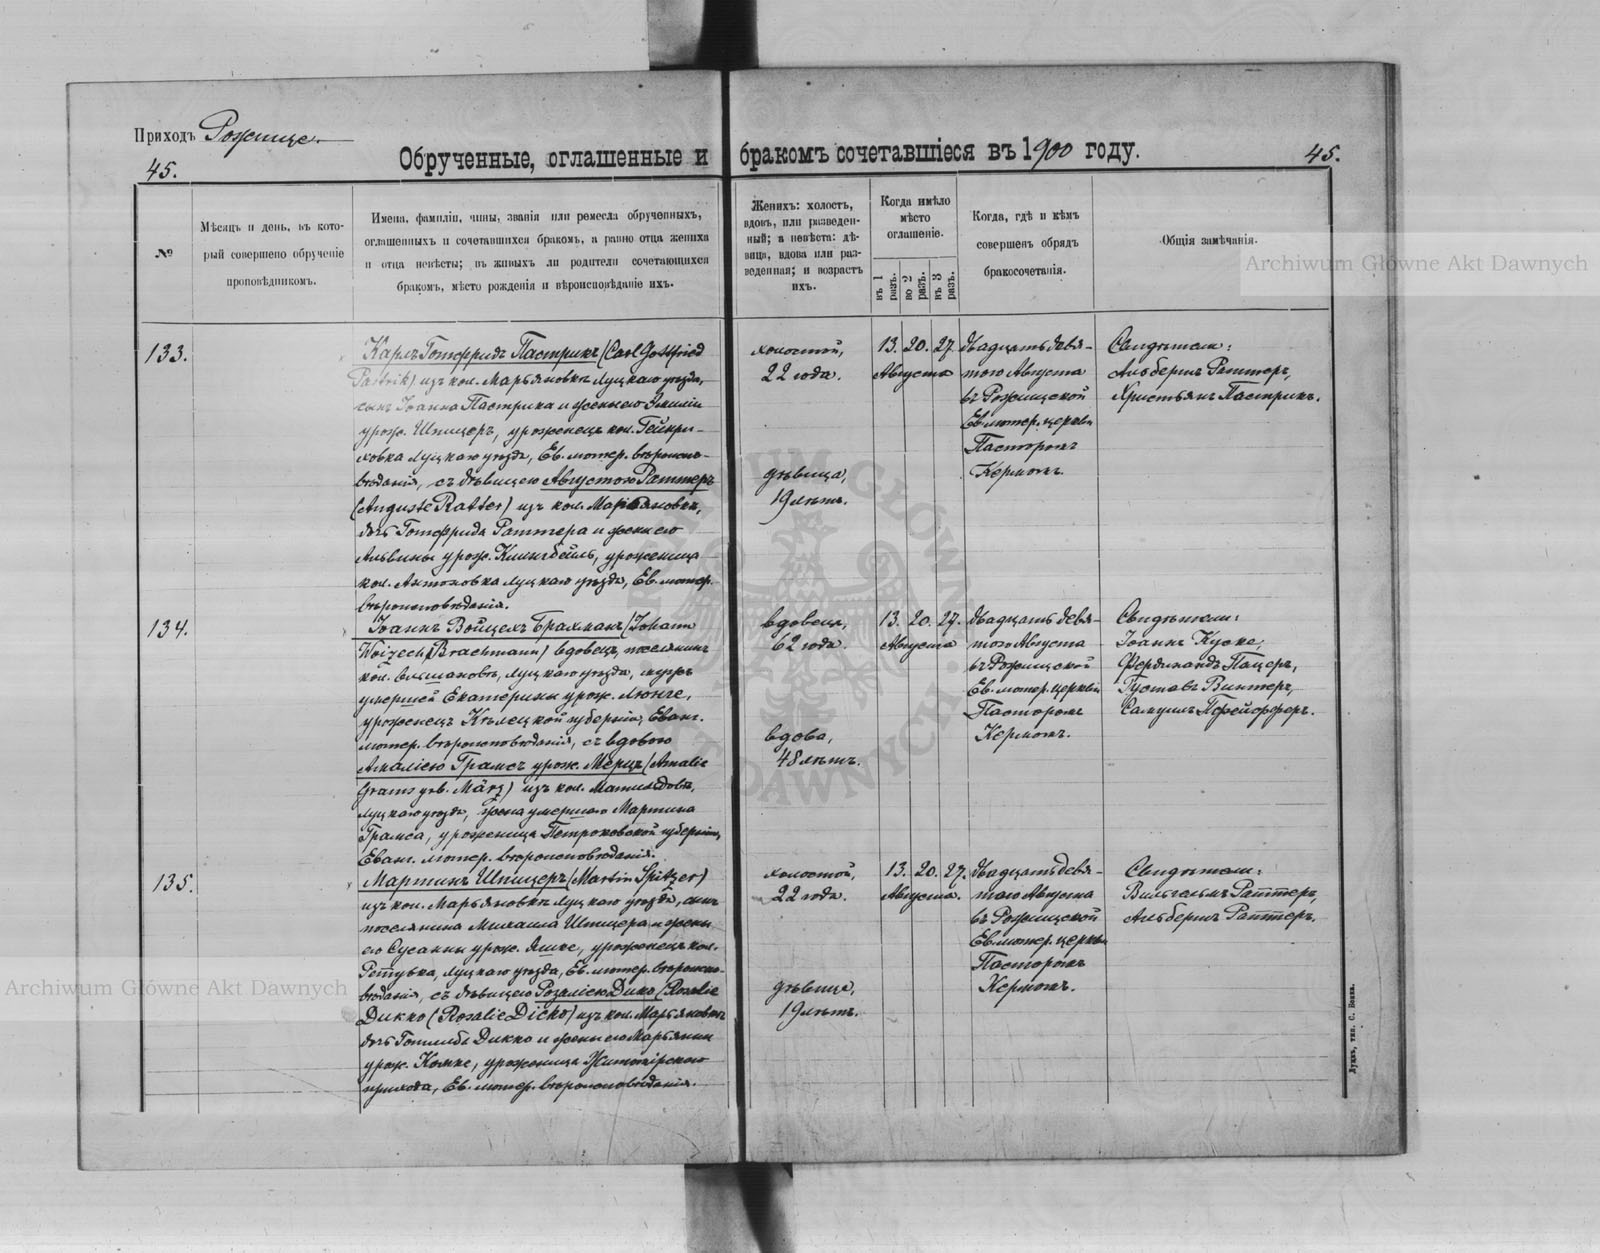 Приходъ Рожище.
45.
Обрученные, оглашенные и бракомъ сочетавшіеся въ 1900 году.
45.
№
Мѣсяцъ и день, въ кото-
рый совершено обрученіе
проповѣдникомъ.
Имена, фамиліи, чины, званія или ремесла обрученныхъ,
оглашенныхъ и сочетавшихся бракомъ, а равно отца жениха
и отца невѣсты; въ живыхъ ли родители сочетающихся
бракомъ, мѣсто рожденія и вѣроисповѣданіе ихъ.
Женихъ: холостъ,
вдовъ, или разведен-
ный; а невѣста: дѣ-
вица, вдова или раз-
веденная; и возрастъ
ихъ.
Когда имѣло
мѣсто
оглашеніе.
въ 1 разъ.
во 2 разъ.
въ 3 разъ.
Когда, гдѣ и кѣмъ
совершенъ обрядъ
бракосочетанія.
Общія замѣчанія.
Archiwum Główne Akt Dawnych
133.
Карлъ Готфридъ Пастрикъ (Carl Gottfried
Pastrik) изъ кол. Марьяновка Луцкаго уѣзда,
сынъ Іоанна Пастрика и жены его Эмиліи
урож. Шпицеръ, уроженецъ кол. Гейнри-
ховка Луцкаго уѣзда, Ев. лютер. вѣроиспо-
вѣданія, съ дѣвицею Августою Раттеръ
(Auguste Ratter) изъ кол. Марьяновка,
дочь Готфрида Раттера и жены его
Альвины урож. Клингбейль, уроженица
кол. Антоновка Луцкаго уѣзда, Ев. лютер.
вѣроисповѣданія.
холостой,
22 года.
дѣвица,
19 лѣтъ.
13. 20. 27.
Августа
двадцать девя-
таго Августа
въ Рожищской
Ев. лютер. церкви
Пасторомъ
Кермомъ.
Свидѣтели:
Альбертъ Раттеръ,
Христьянъ Пастрикъ.
134.
Іоаннъ Войцехъ Брахманъ (Johann
Woizech Brachmann) вдовецъ, поселянинъ
кол. Луцкаго уѣзда, мужъ
умершей Екатерины урож. Люнге,
уроженецъ Кѣлецкой губерніи, Еванг.
лютер. вѣроисповѣданія, съ вдовою
Амаліею Грамсъ урож. Мерцъ (Amalie
Grams geb. März) изъ кол. Матильдовъ,
Луцкаго уѣзда, жена умершаго Мартина
Грамса, уроженица Петроковской губерніи,
Еванг. лютер. вѣроисповѣданія.
вдовецъ,
62 года.
вдова,
48 лѣтъ.
13. 20. 27.
Августа
двадцать девя-
таго Августа
въ Рожищской
Ев. лютер. церкви
Пасторомъ
Кермомъ.
Свидѣтели:
Іоаннъ Куске,
Фердинандъ Пацеръ,
Густавъ Винтеръ,
Самуилъ Пфейфферъ.
135.
Мартинъ Шпицеръ (Martin Spitzer)
изъ кол. Марьяновка Луцкаго уѣзда, сынъ
поселянина Михаила Шпицера и жены
его Сусанны урож. Яшке, уроженецъ кол.
Луцкаго уѣзда, Ев. лютер. вѣроиспо-
вѣданія, съ дѣвицею Розаліею Дикъ (Rosalie
Дикко (Rosalie Dicko) изъ кол. Марьяновка
дочь Готлиба Дикко и жены его Марьянны
урож. Комке, уроженица Житомірскаго
прихода, Ев. лютер. вѣроисповѣданія.
холостой,
22 года.
дѣвица,
19 лѣтъ.
13. 20. 27.
Августа.
двадцать девя-
таго Августа
въ Рожищской
Ев. лютер. церкви
Пасторомъ
Кермомъ.
Свидѣтели:
Вильгельмъ Раттеръ,
Альбертъ Раттеръ.
Archiwum Główne Akt Dawnych
Луцкъ, тип. С. Бокка.
ARCHIWUM GŁÓWNE AKT DAWNYCH